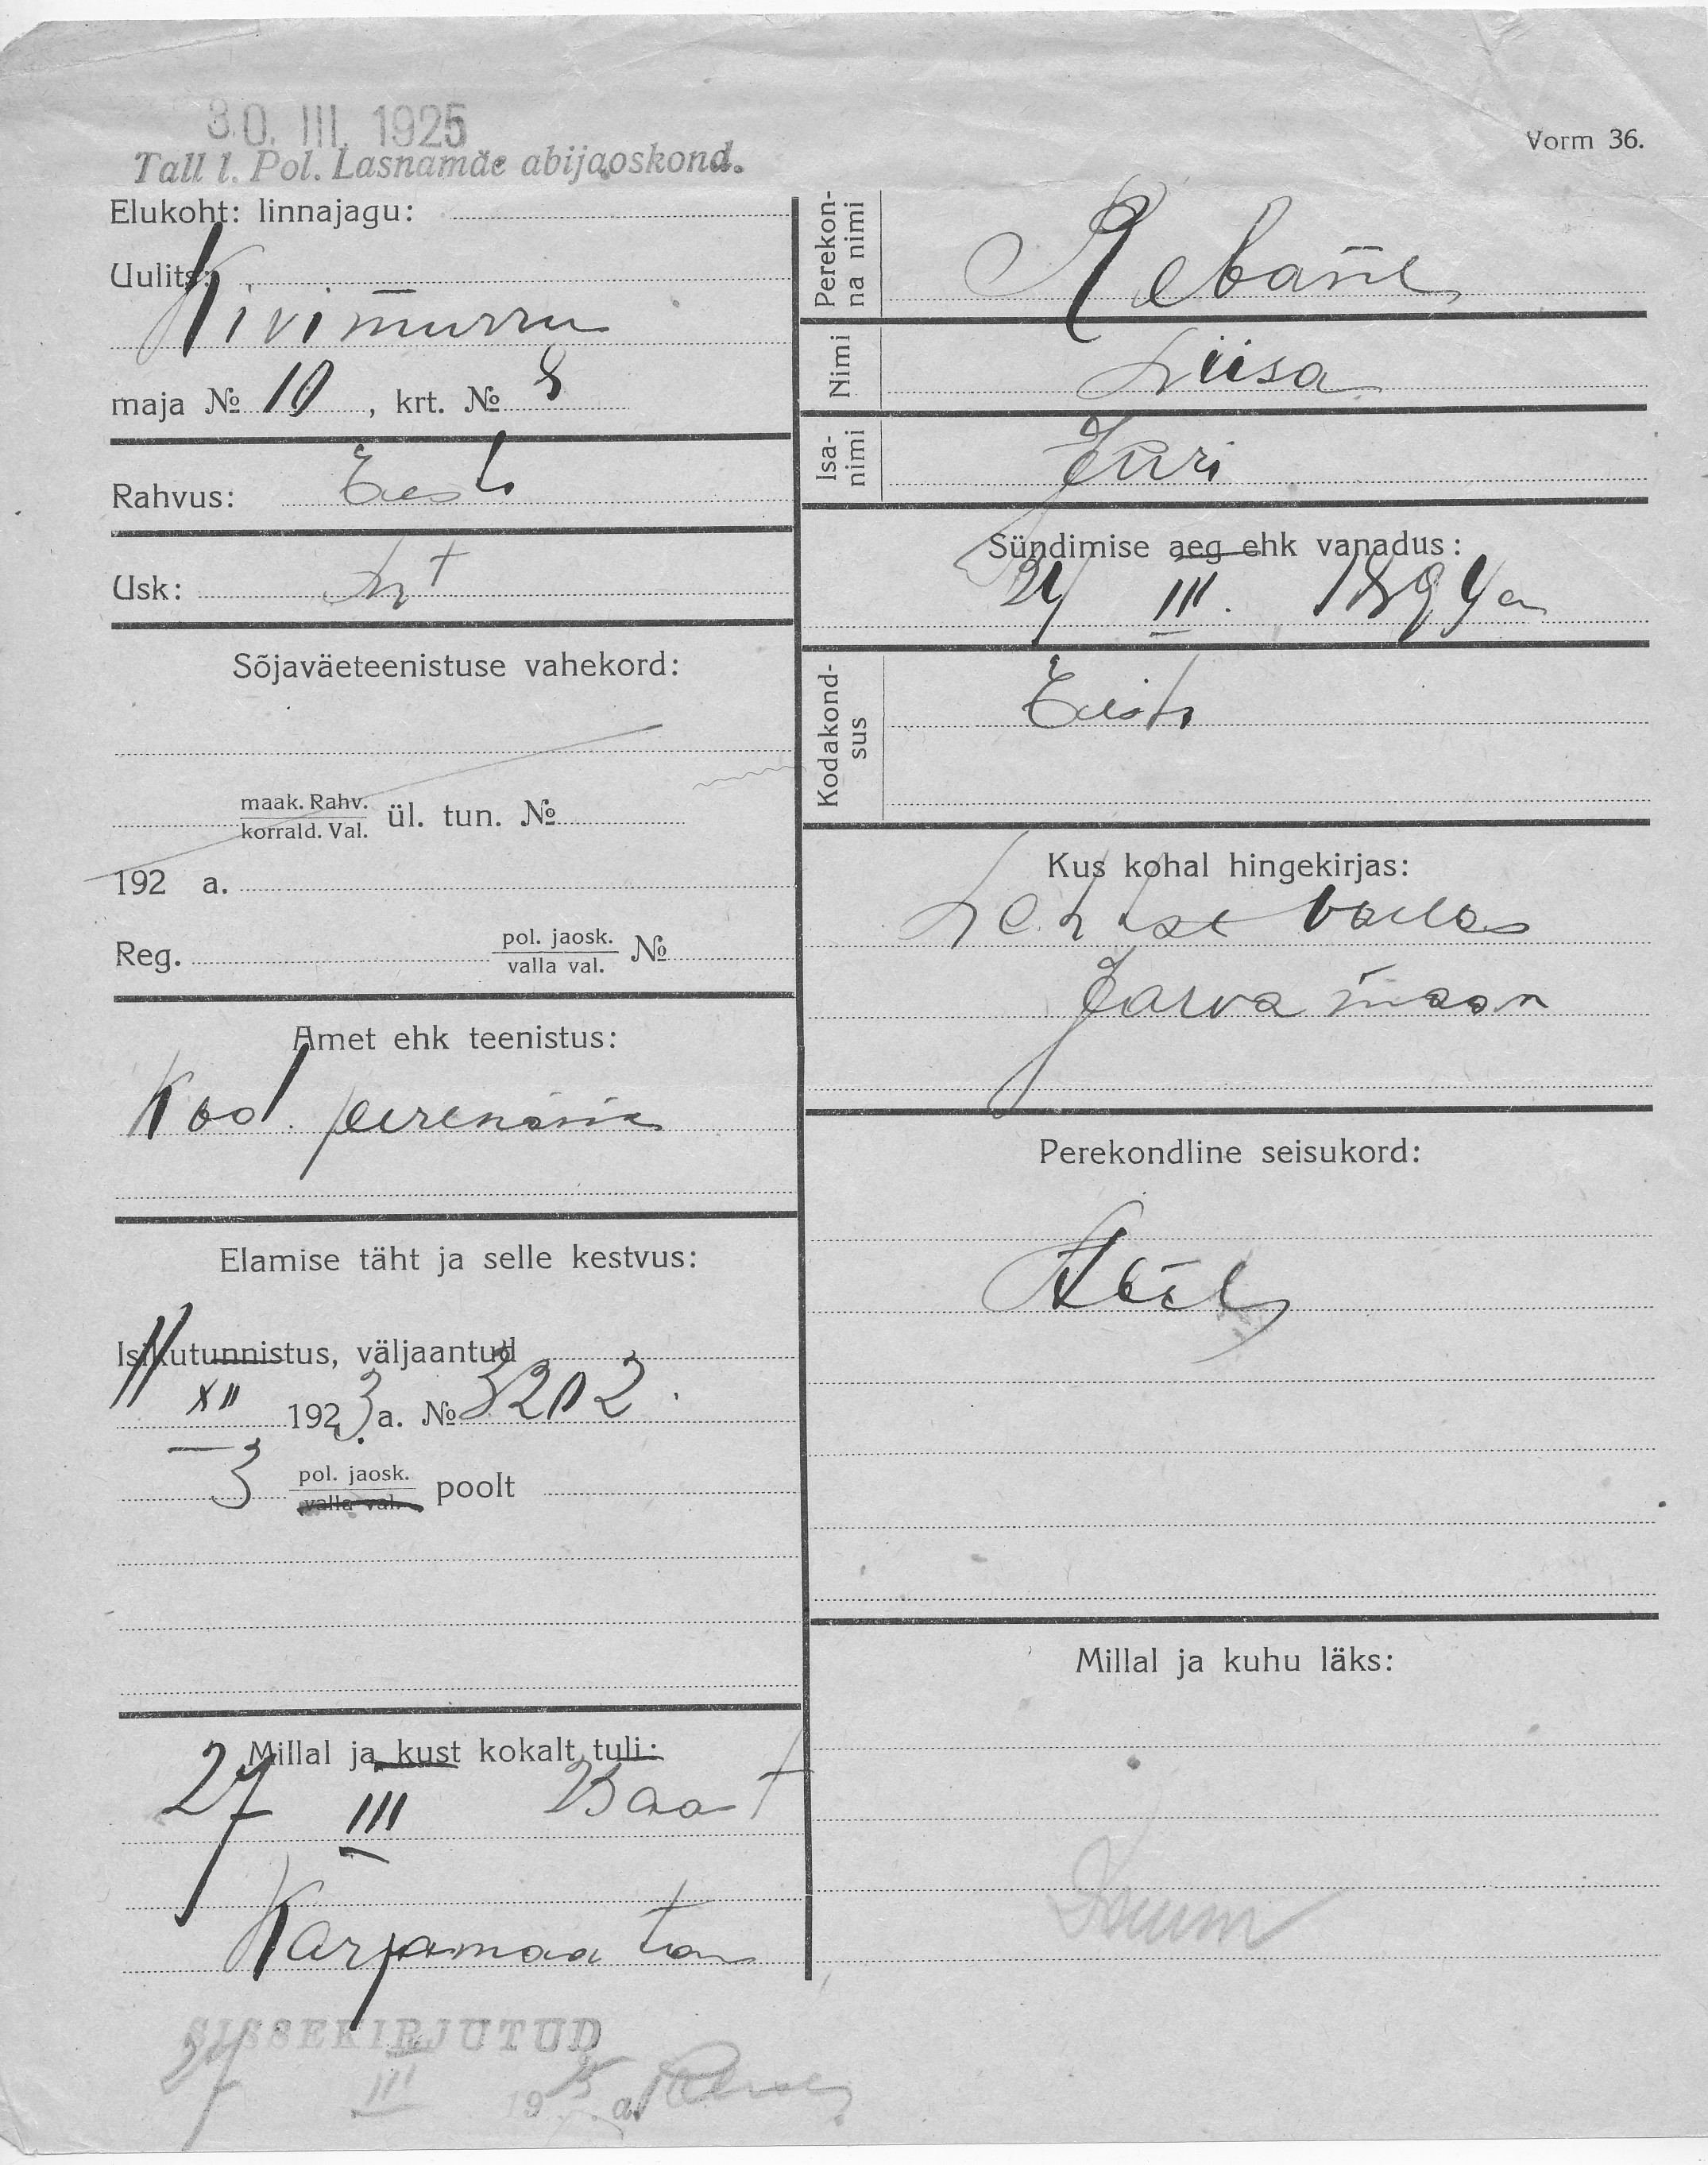 30. III. 1925
Tall l. Pol. Lasnamäe abijaoskond.
Vorm 36.
Elukoht: linnajagu:
Uulits:
Kivimurru
maja № 10, krt. № 8
Rahvus: Eesti
Usk:
Sõjaväeteenistuse vahekord:
maak. Rahv.
korrald. Val.
ül. tun. №
192 a.
Reg. pol. jaosk.
valla val. №
Amet ehk teenistus:
Kod. perenaine
Elamise täht ja selle kestvus:
Isikutunnistus, väljaantud
11
XII 1923 a. № 3202.
3 pol. jaosk.
valla val. poolt
Millal ja kust kokalt tuli:
27 III
Karjamaa tän
SISSEKIRJUTUD
III 19 a.
Perekon-
na nimi
Rebane
Nimi
Liisa
Isa-
nimi
Jüri
Sündimise aeg ehk vanadus:
24 III. 1894 a
Kodakond-
sus
Eesti
Kus kohal hingekirjas:
Lehtse vallas
Järva maan
Perekondline seisukord:
Millal ja kuhu läks: